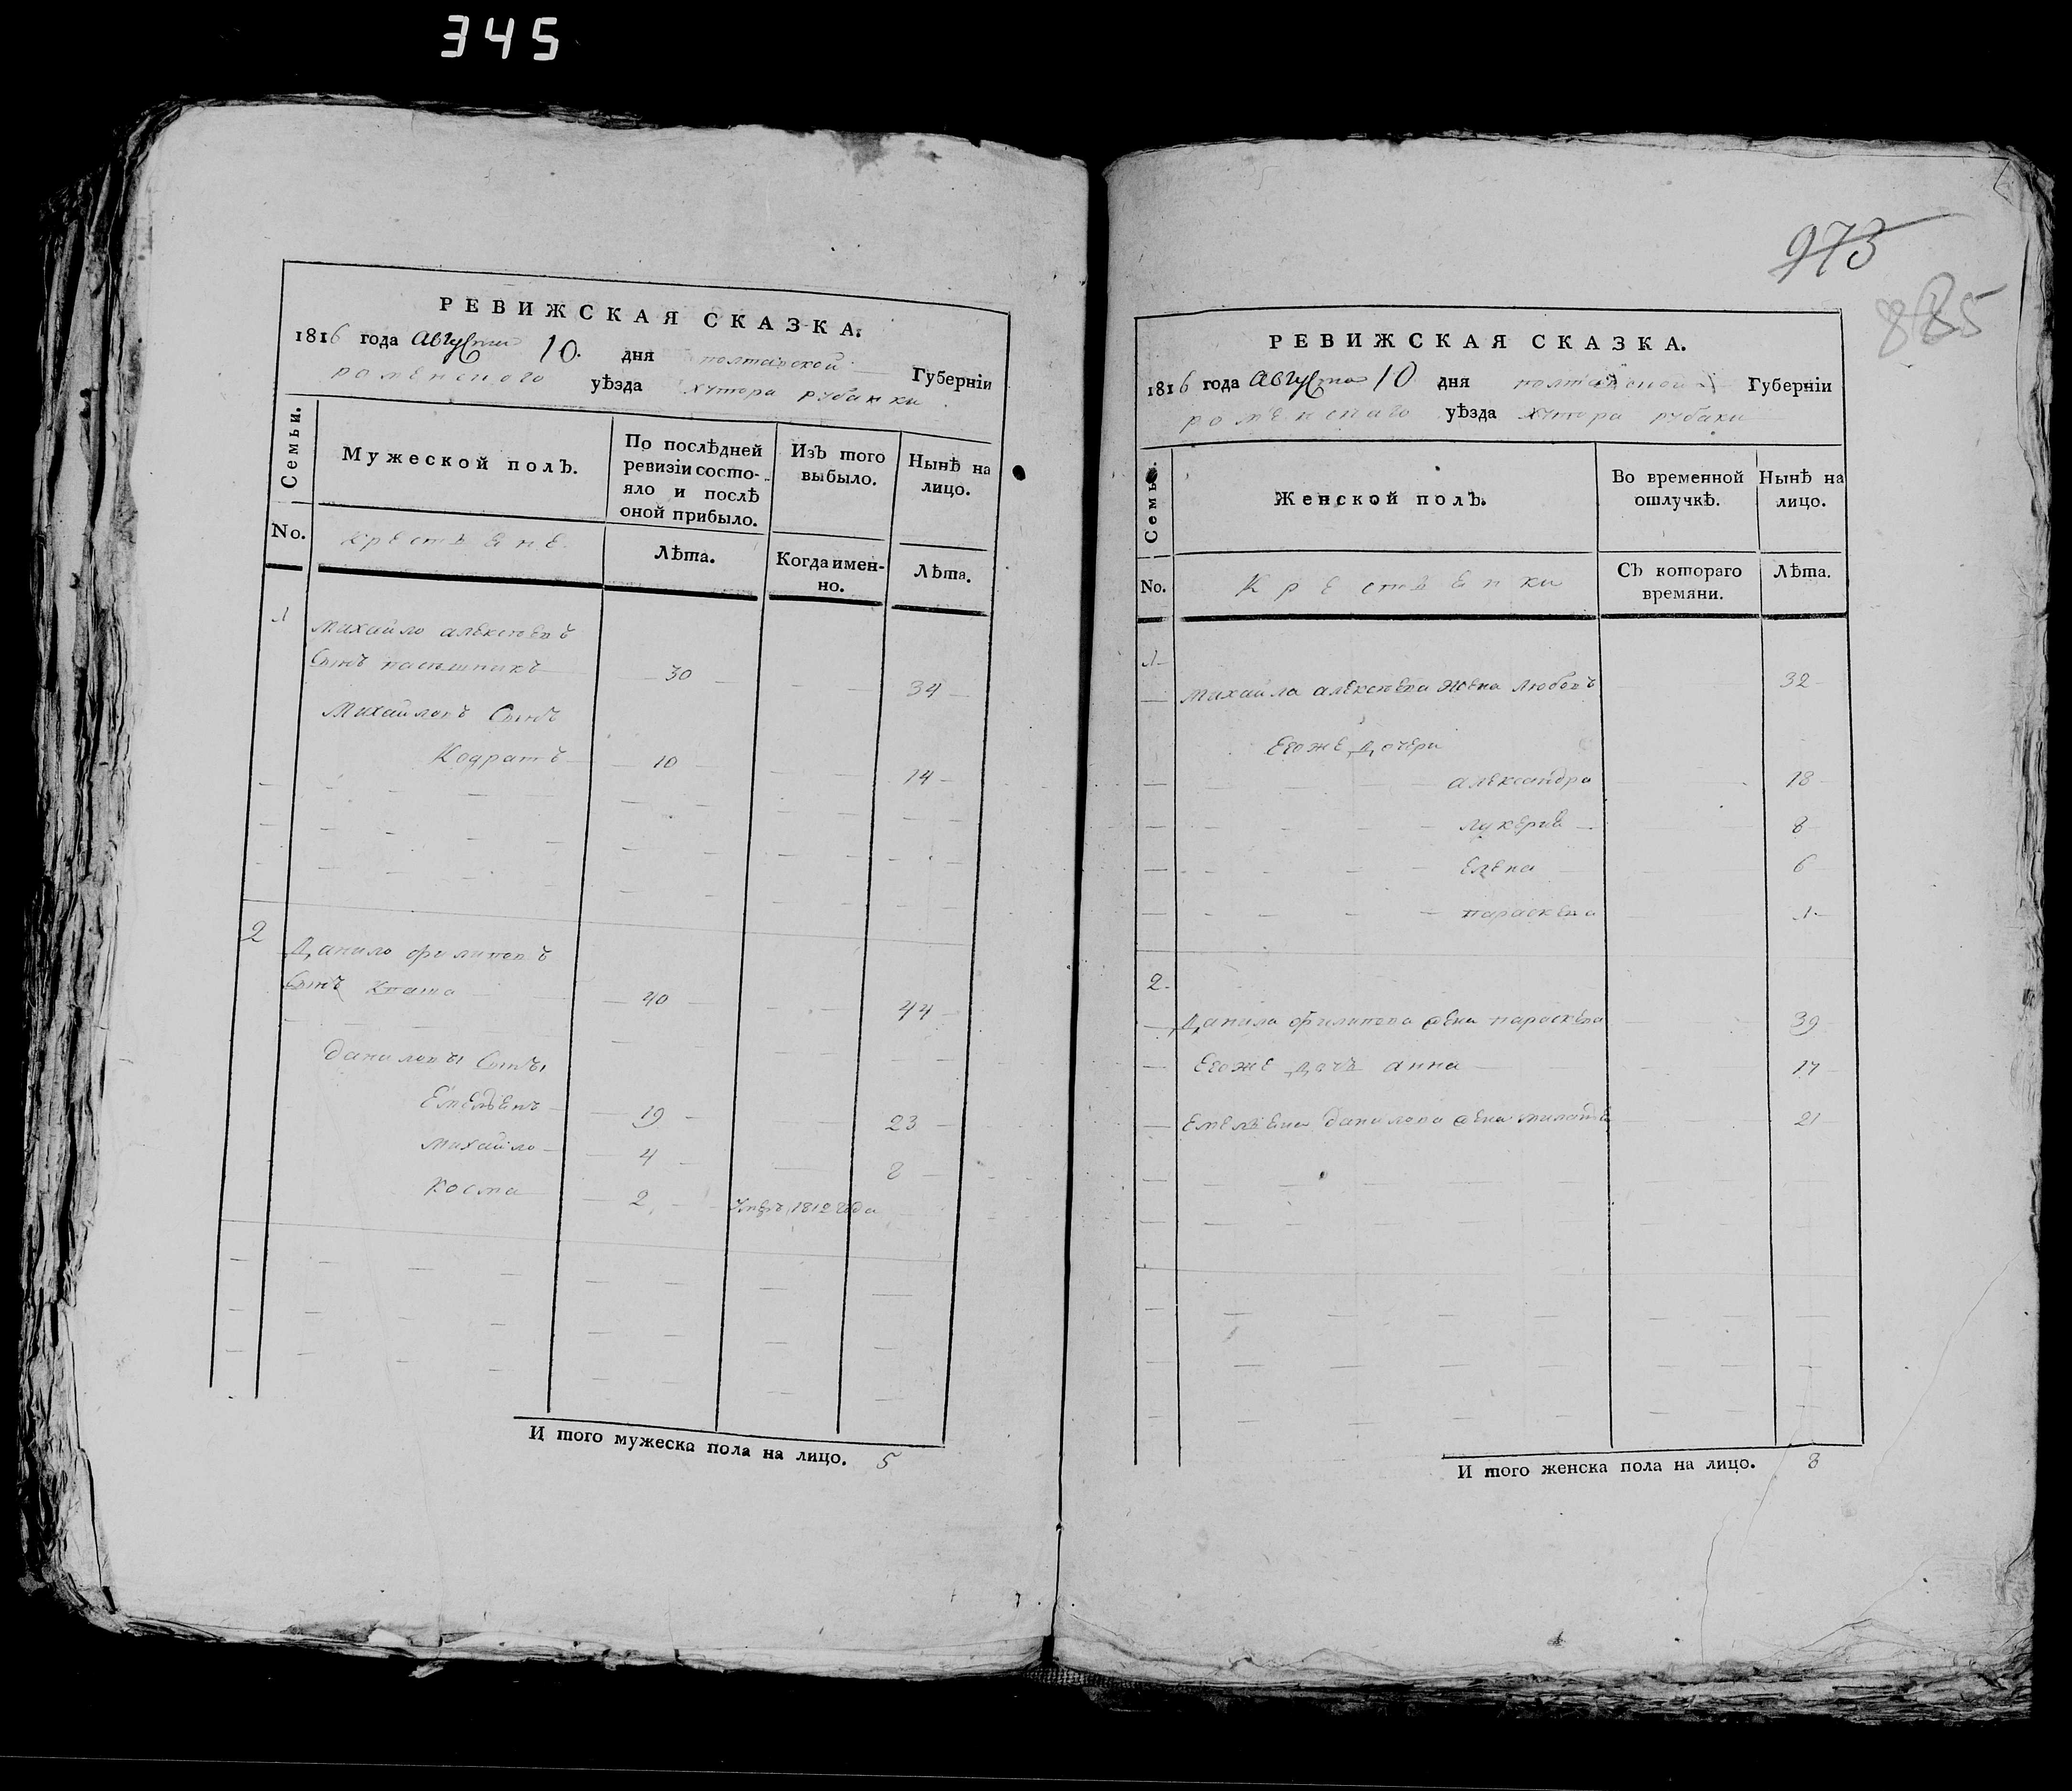 345
РЕВИЖСКАЯ СКАЗКА.
1816 года Августа 10. дня полтавской Губернїи
роменского уѣзда хутора рубанки
Семьи.
Мужеской полъ.
По послѣдней ревизїи состо-
яло и послѣ
оной прибыло.
Изъ того
выбыло.
Нынѣ на
лицо.
No.
крестьяне
Лѣта.
Когда имен-
но.
Лѣта.
1
Михайло алексѣевъ
Сынъ пасѣшникъ 30 34
Михайловъ Сынъ
Кодратъ 10 14
2
Данило филиповъ
Сынъ 40 44
даниловы Сыны
Емельянъ 19 23
михайло 4 8
косма 2 умеръ 1812 года
И того мужеска пола на лицо. 5
973
885
РЕВИЖСКАЯ СКАЗКА.
1816 года Августа 10 дня полтавской Губернїи
роменскаго уѣзда хутора рубаки
Семьи.
Женской полъ.
Во временной
отлучкѣ.
Нынѣ на
лицо.
No.
Крестьянки
Съ котораго
времяни.
Лѣта.
1
михайла алексѣева жена любовь 32
Егоже дочери
александра 18
лукерія 8
Елена 6
параскева 1
2
Данила филипова жена параскева 39
Егоже дочь анна 17
Емельяна данилова жена 21
И того женска пола на лицо. 8